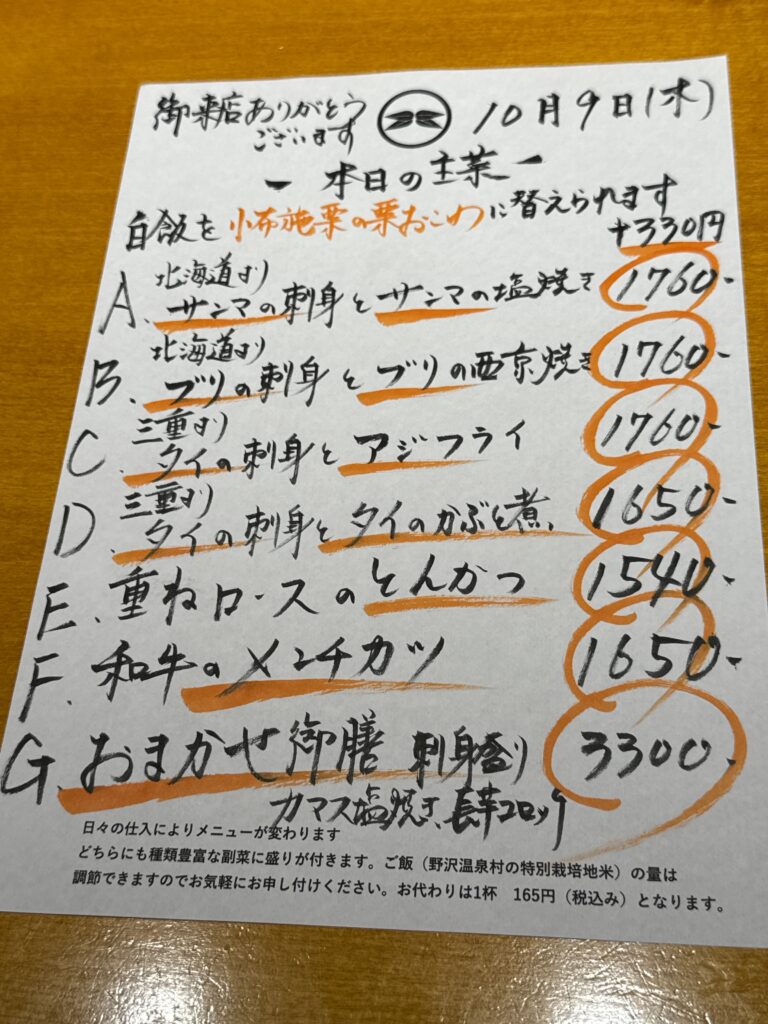 御来店ありがとう
ございます
10月9日(木)
ー 本日の主菜 ー
白飯を小布施栗の栗おこわに替えられます
+330円
北海道より
A. サンマの刺身とサンマの塩焼き 1760-
北海道より
B. ブリの刺身とブリの西京焼き 1760-
三重より
C. タイの刺身とアジフライ 1760-
三重より
D. タイの刺身とタイのかぶと煮 1650-
E. 重ねロースのとんかつ 1540-
F. 和牛のメンチカツ 1650-
G. おまかせ御膳 刺身盛り 3300-
カマス塩焼き、長芋コロッケ
日々の仕入によりメニューが変わります
どちらにも種類豊富な副菜に盛りが付きます。ご飯（野沢温泉村の特別栽培地米）の量は
調節できますのでお気軽にお申し付けください。お代わりは1杯　165円（税込み）となります。